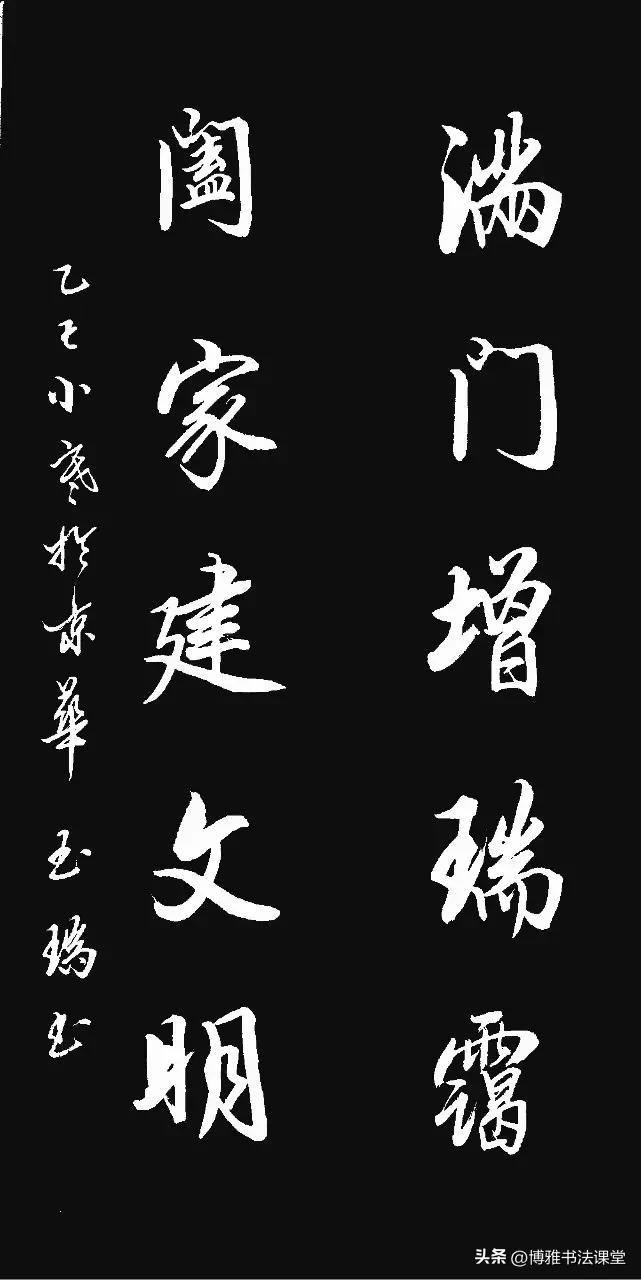 满门增瑞霭
阖家建文明
乙巳小寒于京华 玉瑞书
头条 @博雅书法课堂